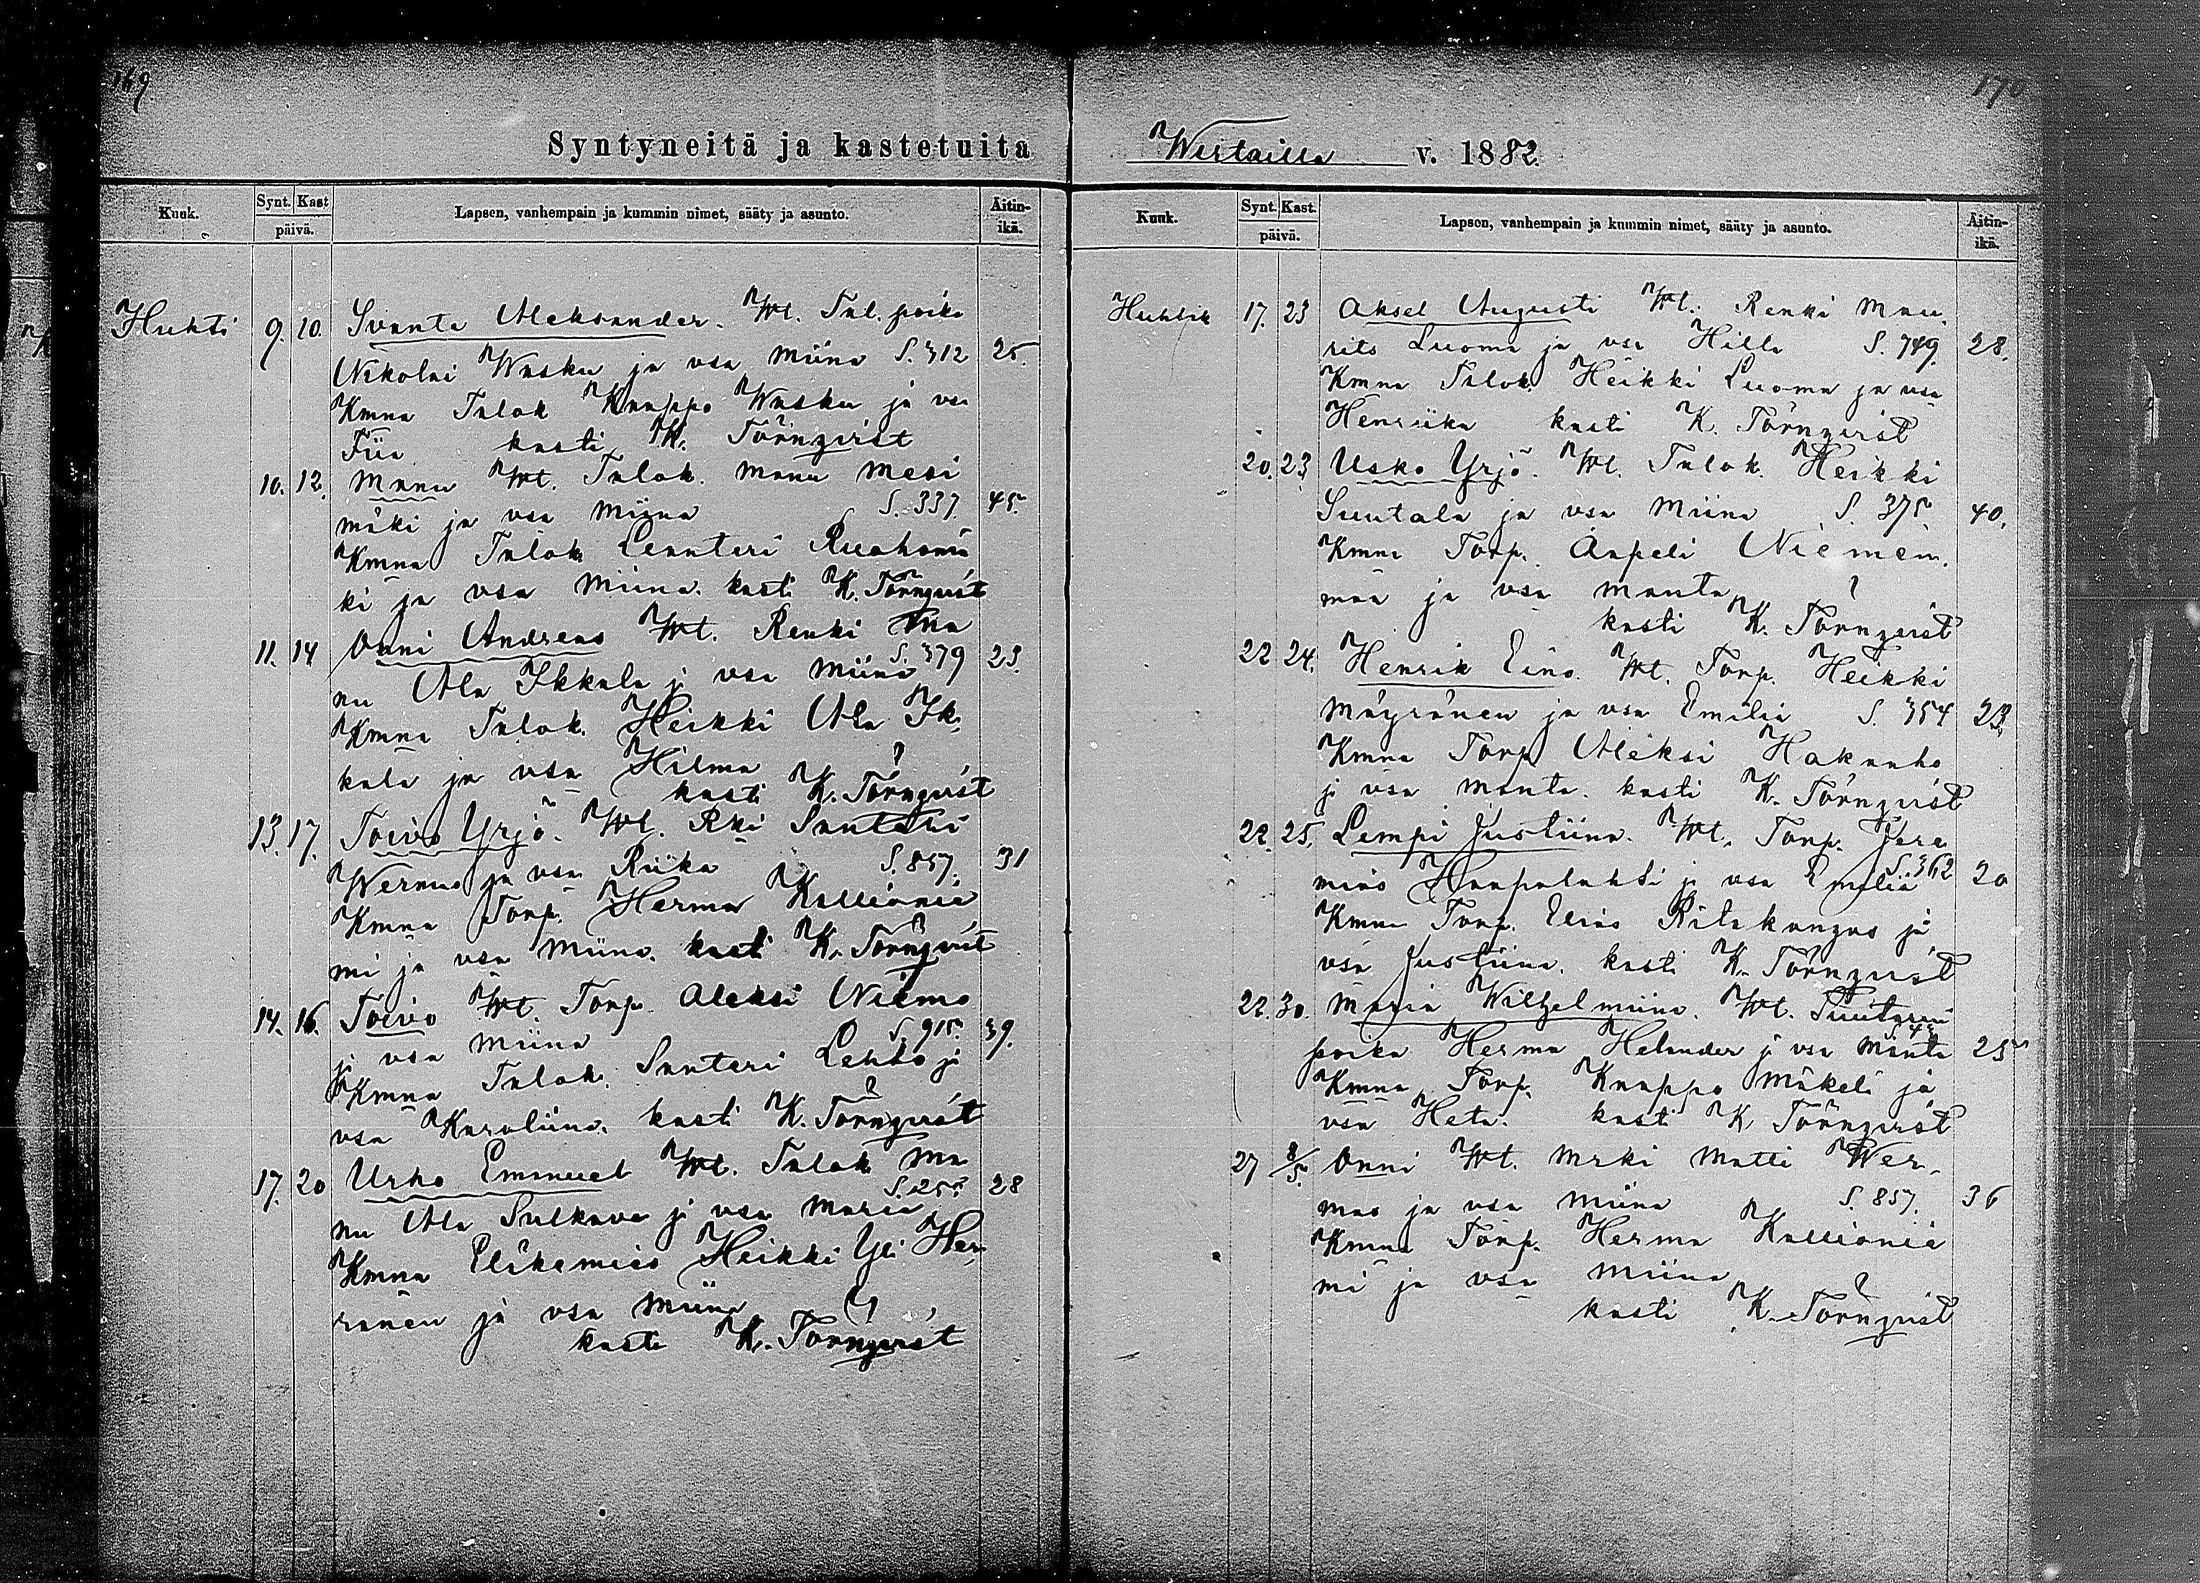 169
Syntyneitä ja kastetuita
Kuuk.
Synt. Kast
päivä.
Lapsen, vanhempain ja kummin nimet, sääty ja asunto.
Äitin-
ikä.
Huhti 9. 10. Svante Aleksander. Wt. Tal. poika
Nikolai Wasku ja vsa Miina S. 312 25
Kmna Talok Kaappo Wasku ja vsa
Fiia kasti K. Törnqvist
10. 12. Manu Wt. Talok. Manu Mesi
mäki ja vsa Miina S. 337 45.
Kmna Talok Lennteri Ruohomä
ki ja vsa Miina. kasti K. Törnqvist
11. 14 Onni Andreas Wt. Renki Ma
nu Ala Ikkala ja vsa Miina S. 379 23.
Kmna Talok. Heikki Ala Ik-
kala ja vsa Hilma
kasti K. Törnqvist
13. 17. Toivo Yrjö. Wt. Rki Santeri
Wermas ja vsa Riika S. 857. 31
Kmna Torp. Herma Kallionie
mi ja vsa Miina. kasti K. Törnqvist
14. 16. Toivo Wt. Torp. Aleksi Niemo
ja vsa Miina S. 915. 39.
Kmna Talok. Santeri Lehto ja
vsa Karoliina. kasti K. Törnqvist
17. 20 Urho Emanuel Wt. Talok Ma
nu Ala Sulkava ja vsa Maria 28
Kmna Eläkemies Heikki Yli Her-
ranen ja vsa Miina
kasti K. Törnqvist
170
Wirtailla v. 1882.
Kuuk.
Synt. Kast.
päivä.
Lapsen, vanhempain ja kummin nimet, sääty ja asunto.
Äitin-
ikä.
17. 23 Aksel Augusti Wt. Renki Mau-
rits Luoma ja vsa Hilla S. 749. 28.
Kmna Talok. Heikki Luoma ja vsa
Henriika kasti K. Törnqvist
20. 23 Usko Yrjö. Wt. Talok. Heikki
Suutala ja vsa Miina S. 375 40.
Kmna Torp. Anpeli Niemen-
maa ja vsa Manta
kasti K. Törnqvist
22 24. Henrik Eino. Wt. Torp. Heikki
Mäyränen ja vsa Emilia S. 354 23.
Kmna Torp Aleksi Hakaaho
ja vsa Manta. kasti K. Törnqvist
22. 25. Lempi Justiina. Wt. Torp. Jere
mias Haapalahti ja vsa Emilia S. 362 20
Kmna Torp. Elias Ritakangas ja
vsa Justiina. kasti K. Törnqvist
22. 30. Maria Wilhelmiina. Wt. Suutarin
poika Herma Helander ja vsa Manta 25
Kmna Torp. Kaappo Mäkelä ja
vsa Heta. kasti K Törnqvist
27 8/5. Onni Wt. Mrki Matti Wer-
mas ja vsa Miina S. 857. 36
Kmna Torp. Herma Kallionie
mi ja vsa Miina
kasti K. Törnqvist